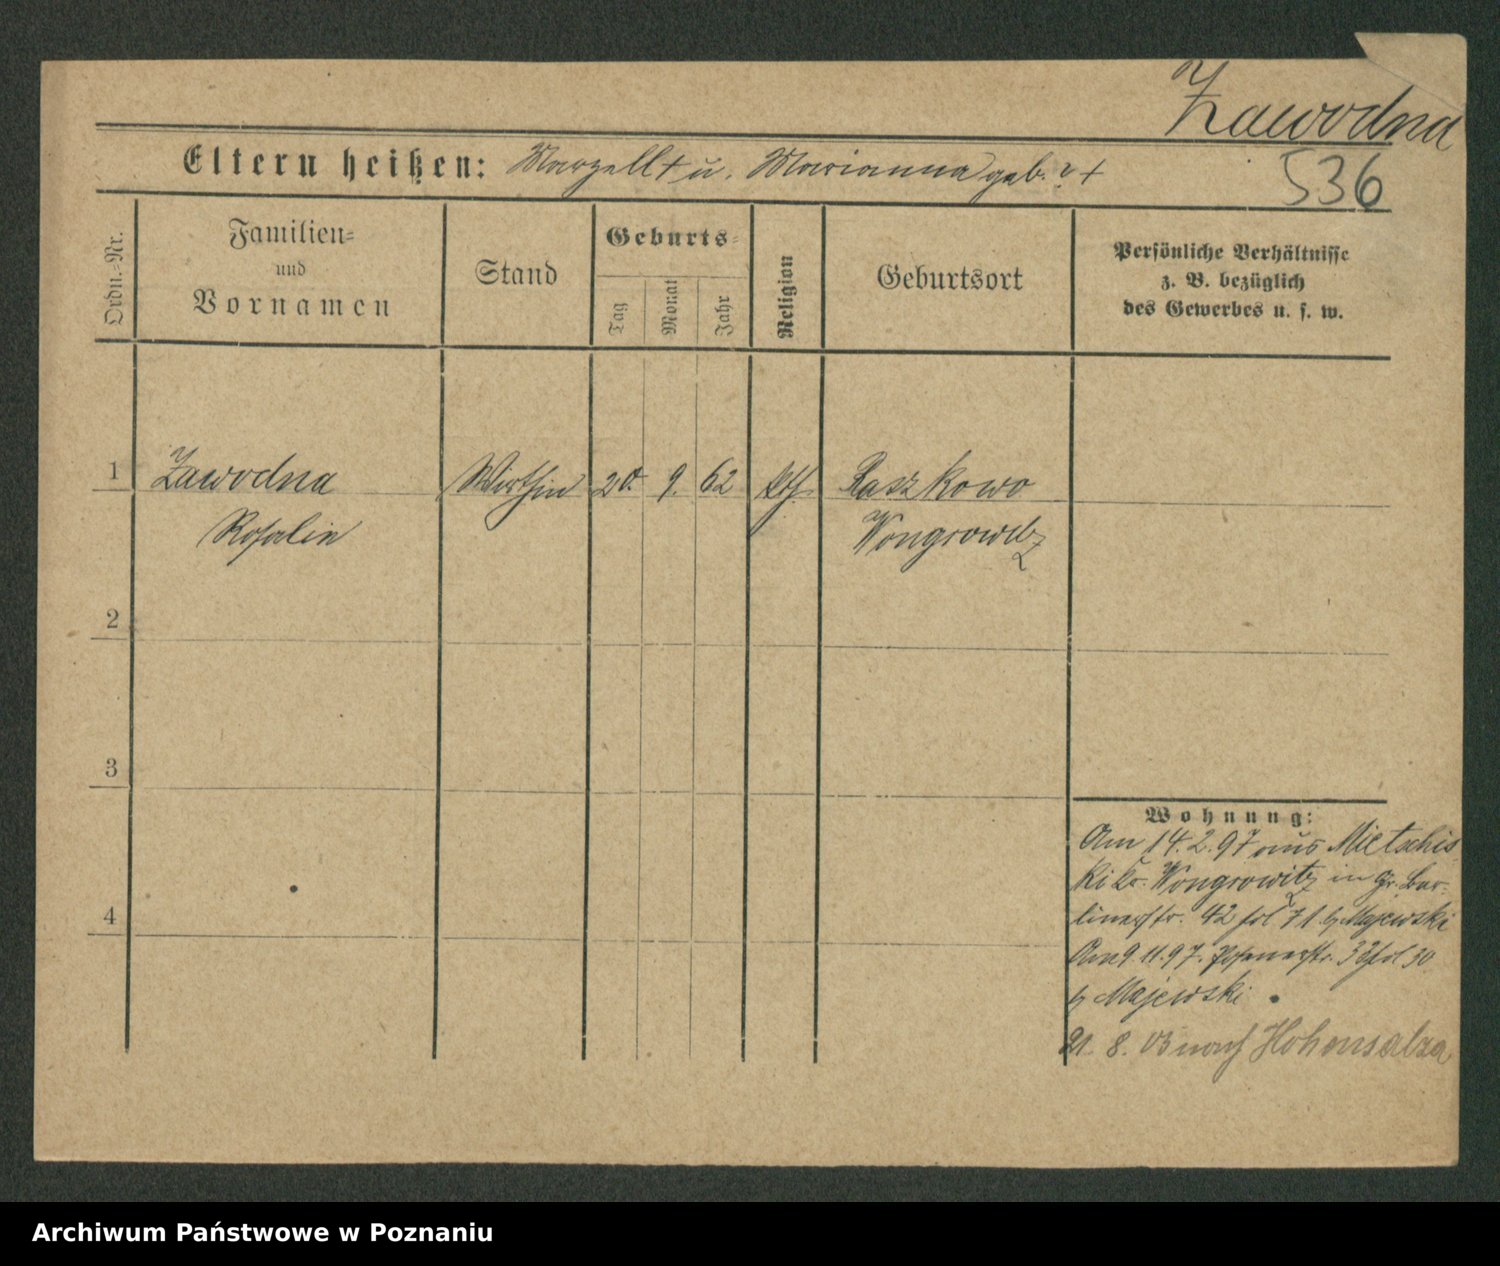 Zawodna
Eltern heißen: Marzell + u. Marianna geb. ? +
536
Ordn.-Nr.
Familien-
und
Vornamen
Stand
Geburts-
Tag
Monat
Jahr
Religion
Geburtsort
Persönliche Verhältnisse
z. B. bezüglich
des Gewerbes u. s. w.
1 Zawodna Wirthin 20. 9. 62 kth. Raszkowo
Rosalie Wongrowitz
2
3
Wohnung:
Am 14. 2. 97 aus Mietschis
ki Kr. Wongrowitz in Gr. Ber-
linerstr. 42 I b/ Majewski
4
Am 9. 11. 97. Posenerstr. 30
b/ Majewski
21. 8. 03 nach Hohensalza
Archiwum Państwowe w Poznaniu